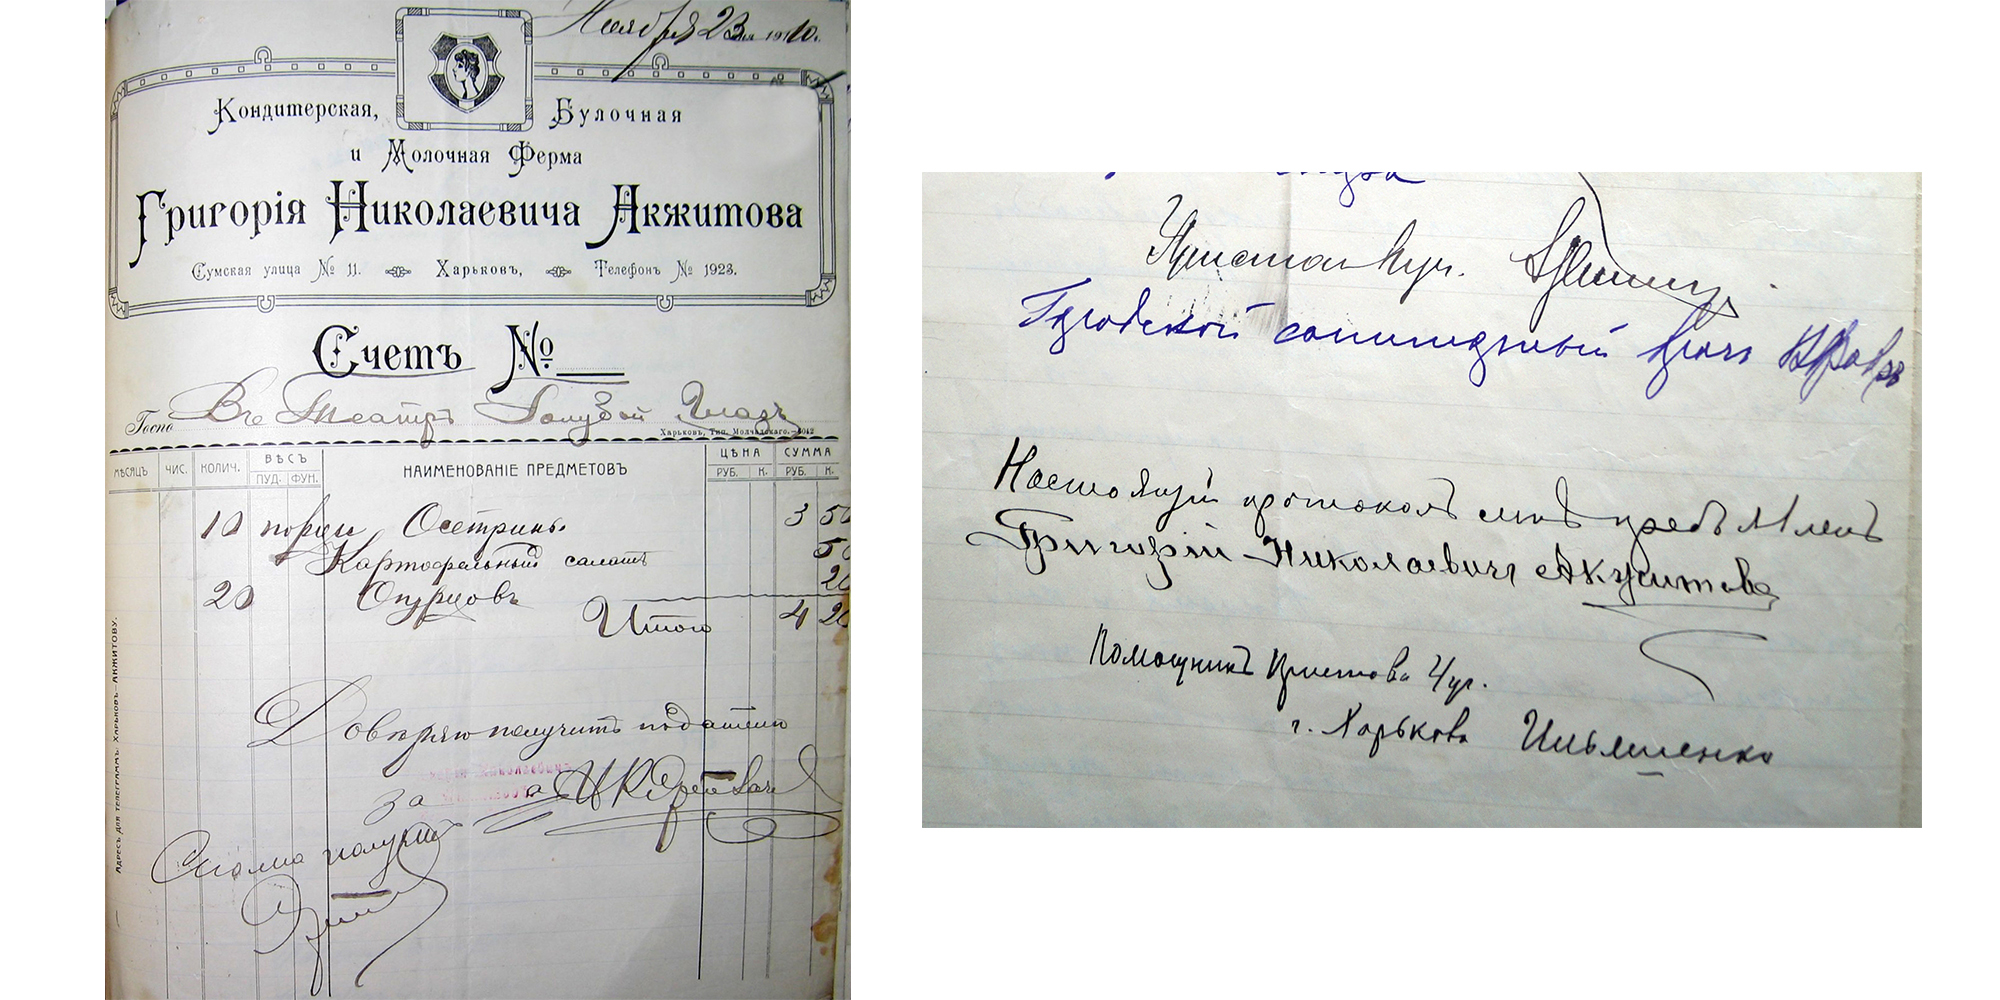 Ноября 23 дня 1910 г.
Кондитерская, Булочная
и Молочная Ферма
Григорія Николаевича Акжитова
Сумская улица № 11. Харьковъ, Телефонъ № 1923.
Счетъ №
Госпо Въ Театръ Голубой Глазъ
Харьковъ, Тип. Молчадскаго.
МѢСЯЦЪ ЧИС. КОЛИЧ. ВѢСЪ НАИМЕНОВАНІЕ ПРЕДМЕТОВЪ ЦѢНА СУММА
ПУД. ФУН. РУБ. К. РУБ. К.
10 порци Осетрины 3 50
Картофельный салатъ 50
20 Огурцовъ 20
Итого 4 20
Довѣряю получить подателю
за
Сполна получилъ
АДРЕСЪ ДЛЯ ТЕЛЕГРАММЪ: ХАРЬКОВЪ—АКЖИТОВУ.
Приставъ
Городской санитарный врачъ
Настоящій протоколъ мнѣ предъявленъ
Григорій Николаевичъ Акжитовъ
Помощникъ Пристава 4 уч.
г. Харькова Ильяшенко